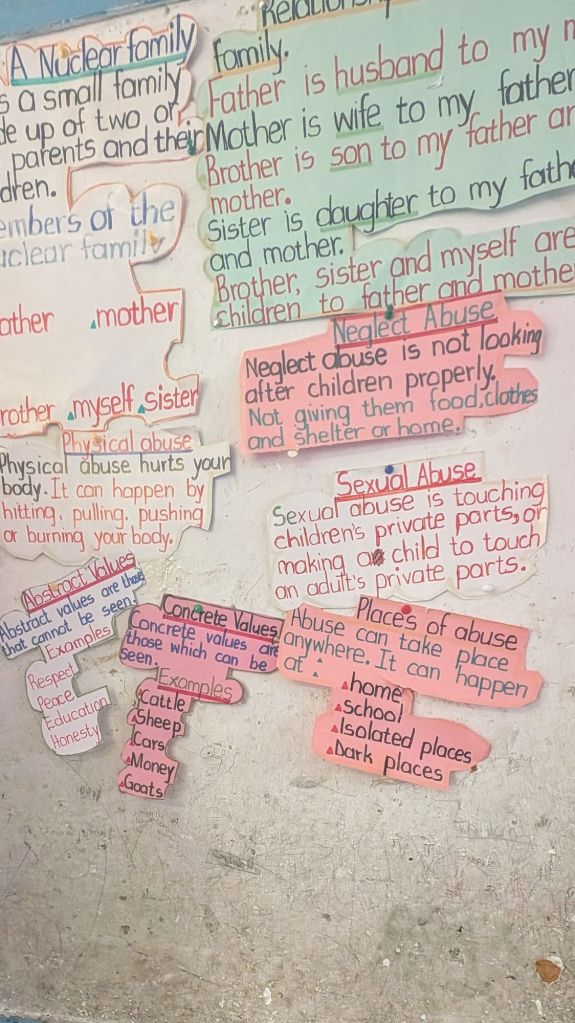 A Nuclear family
a small family
up of two or
parents and their
members of the
family
mother
myself sister
Relationship
family.
Father is husband to my
Mother is wife to my father
Brother is son to my father
mother.
Sister is daughter to my
and mother.
Brother, sister and myself are
children to father and
Neglect Abuse
Neglect abuse is not looking
after children properly.
Not giving them food, clothes
and shelter or home.
Physical abuse
Physical abuse hurts your
body. It can happen by
hitting, pulling, pushing
or burning your body.
Sexual Abuse
Sexual abuse is touching
children's private parts, or
making a child to touch
an adult's private parts.
Abstract Values
Abstract values are those
that cannot be seen.
Examples
Respect
Peace
Education
Honesty
Concrete Values
Concrete values are
those which can be
seen.
Examples
Cattle
Sheep
Cars
Money
Goats
Places of abuse
Abuse can take place
anywhere. It can happen
at :
home
school
Isolated places
Dark places